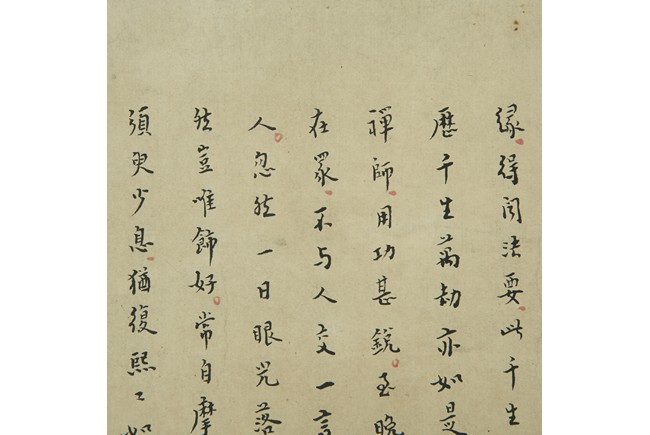 緣得聞法要此千生
歷千生萬劫亦如是
禪師用功甚銳至晚
在眾不与人交一言
人忽然一日眼光落
然豈唯飾好常自摩
須臾少息猶復熙〻如